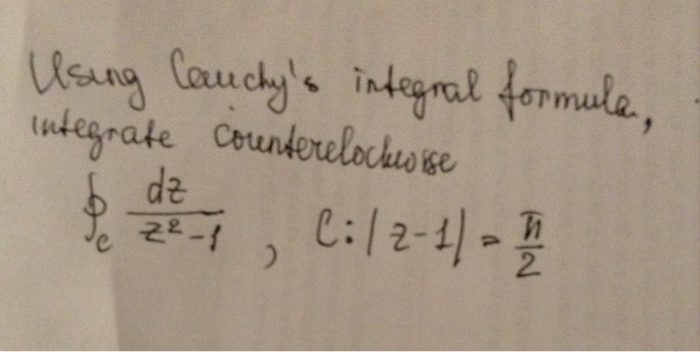 Using Cauchy's integral formula,
integrate counterclockwise
∮_c dz/(z²-1), C:|z-1| = π/2